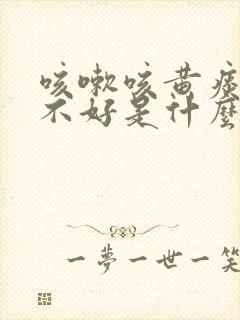 咳嗽咳黄痰
不好是什麼
一夢一世一笑